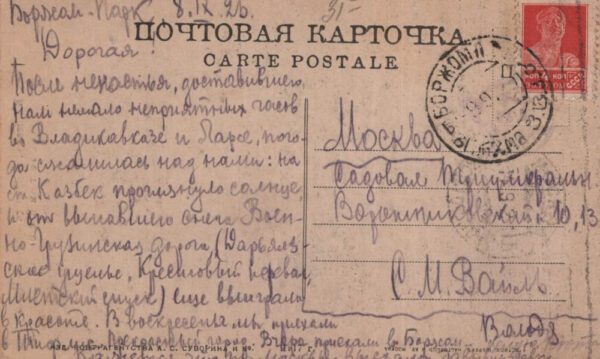 Боржом-Парк 8.IX 26.
31-
Дорогая!
ПОЧТОВАЯ КАРТОЧКА.
CARTE POSTALE
После ненастья, доставившего
нам немало неприятных часов
во Владикавказе и Ларсе, пого-
да сжалилась над нами: на
ст. Казбек проглянуло солнце,
и от выпавшего снега Воен-
но-Грузинская дорога (Дарьяль-
ское ущелье, Крестовый перевал,
Млетский спуск) еще выиграла
в красоте. В воскресенье мы приехали
в Тифлис. Прекрасный город. Вчера приехали в Боржом.
Володя
БОРЖОМ
Москва
Садовая Триумфальн
Воротниковский 10, 13
С. М. Вайль
4 КОП
ИЗД. КОНТР-АГЕНТСТВА А. С. СУВОРИНА И К°. 1917 г.